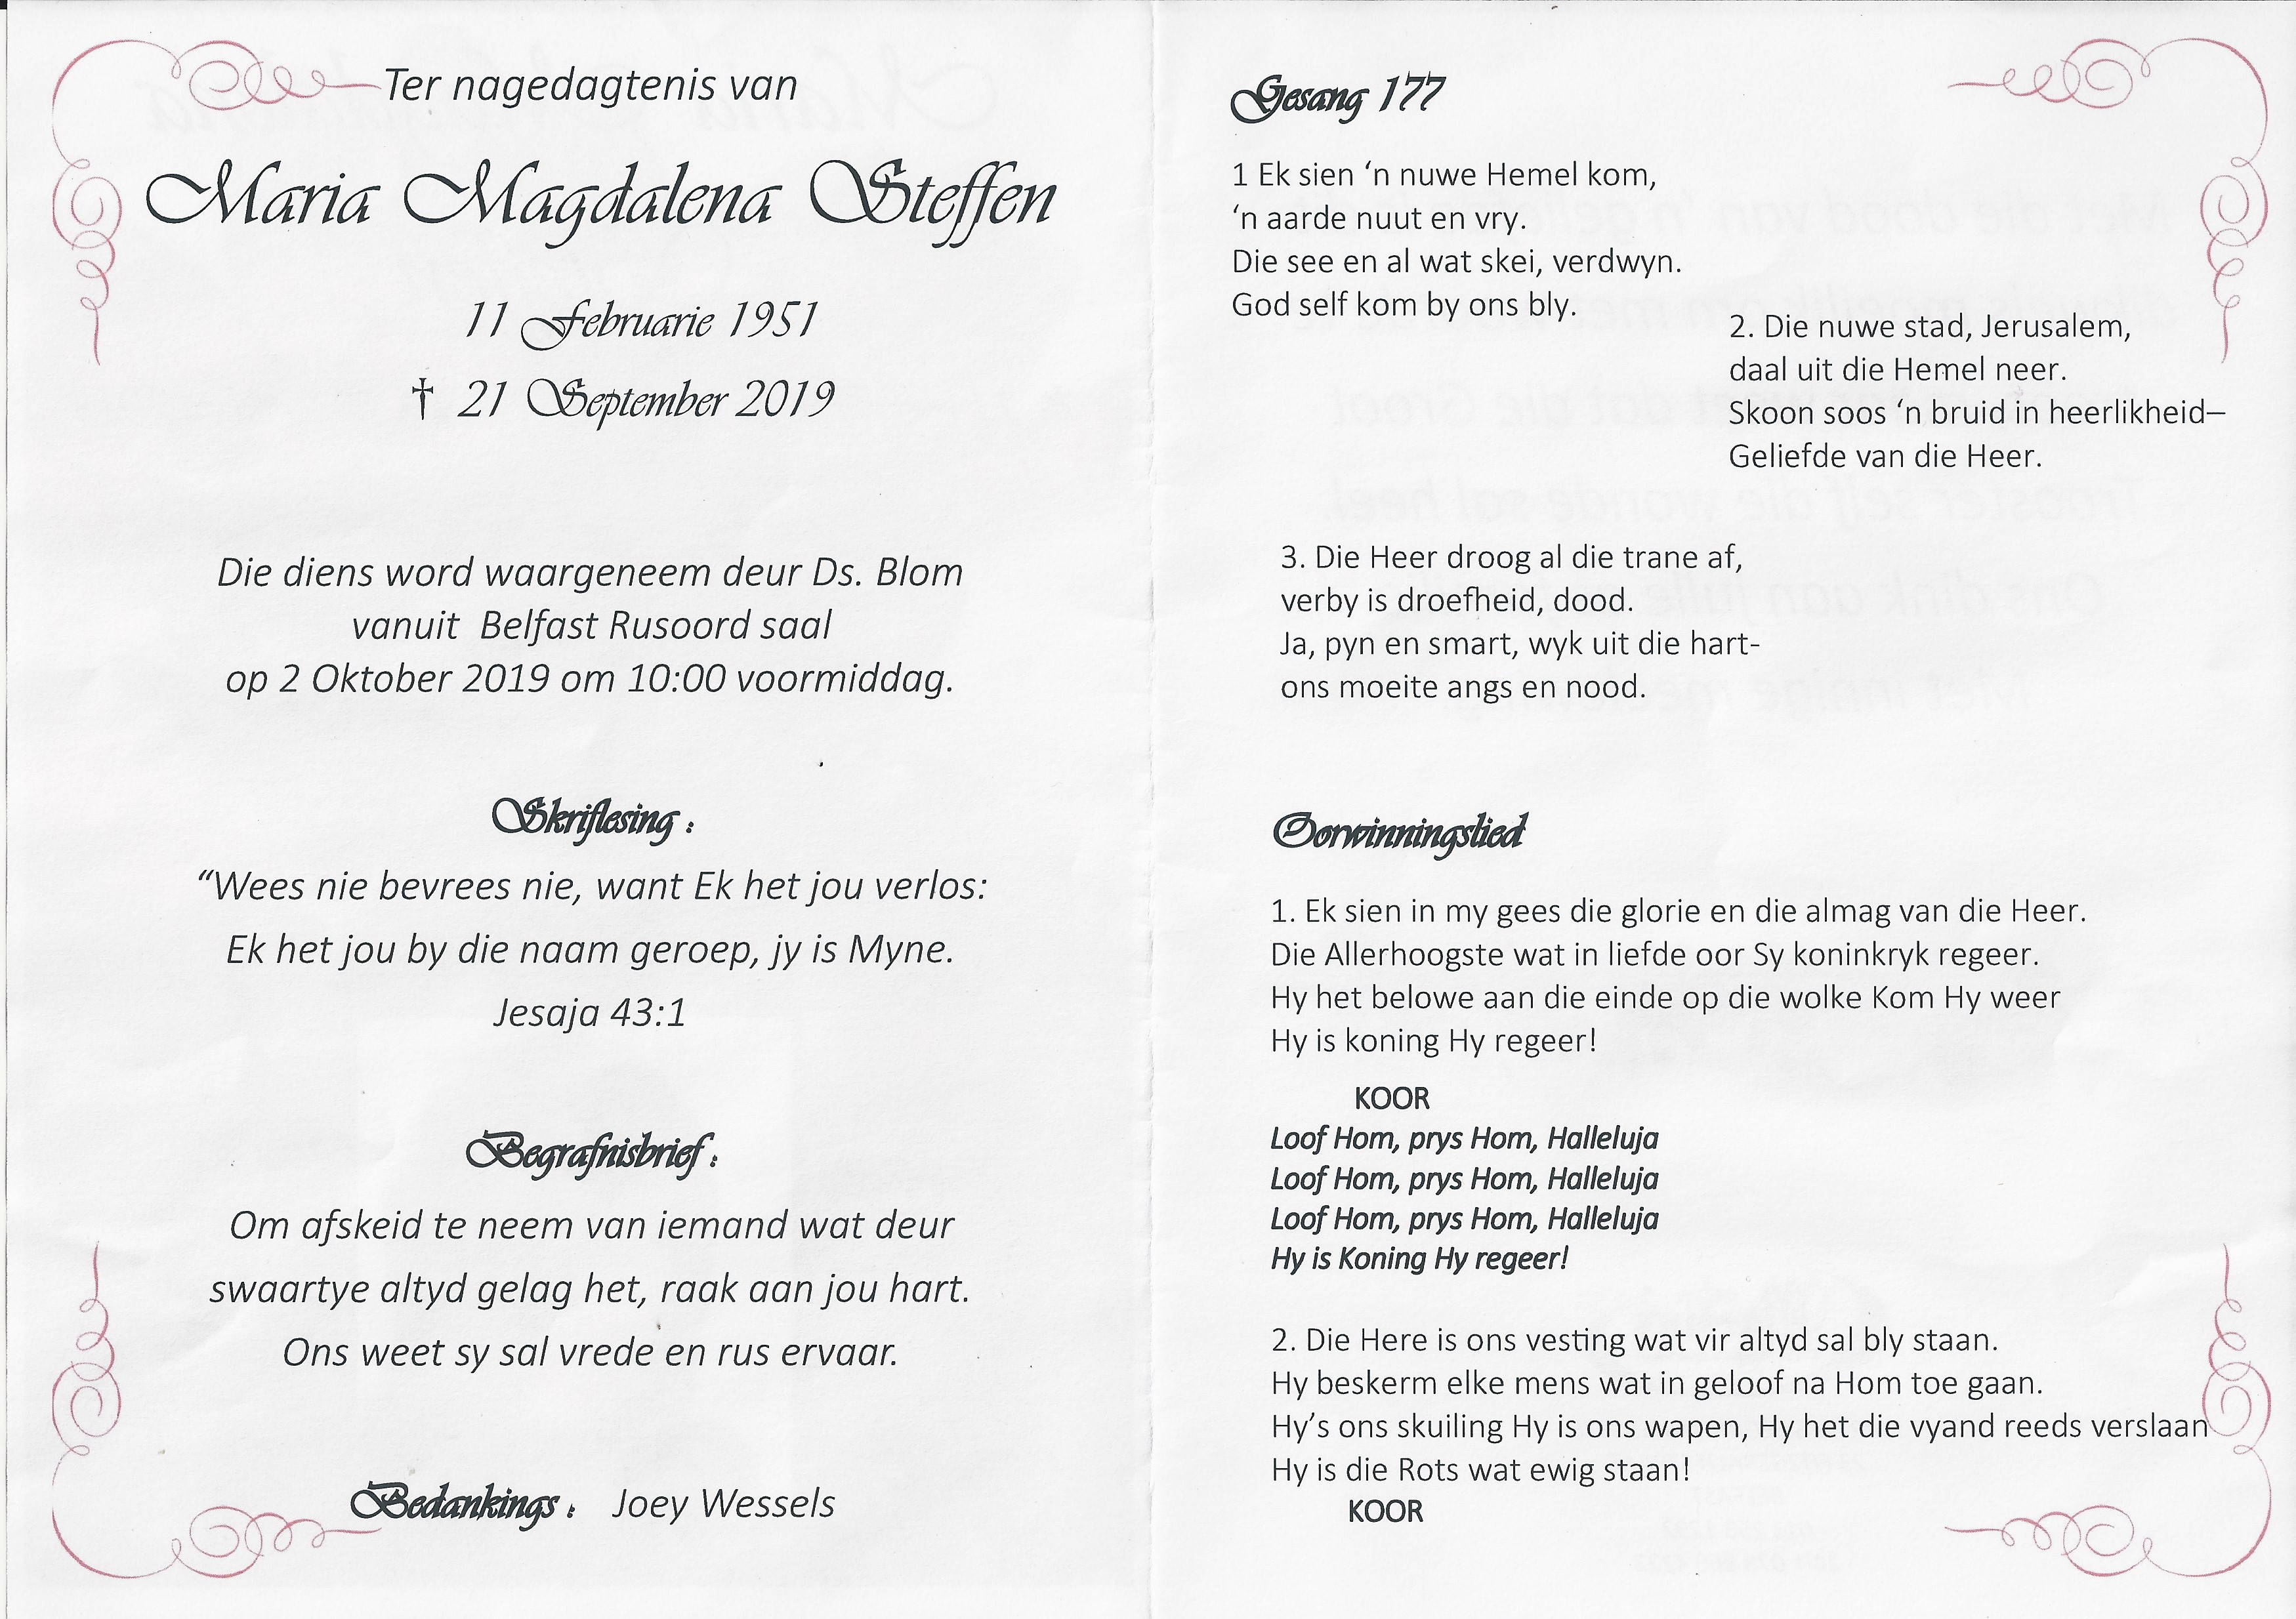 Ter nagedagtenis van
Maria Magdalena Steffen
11 Februarie 1951
† 21 September 2019
Die diens word waargeneem deur Ds. Blom
vanuit Belfast Rusoord saal
op 2 Oktober 2019 om 10:00 voormiddag.
Skriflesing :
“Wees nie bevrees nie, want Ek het jou verlos:
Ek het jou by die naam geroep, jy is Myne.
Jesaja 43:1
Begrafnisbrief :
Om afskeid te neem van iemand wat deur
swaartye altyd gelag het, raak aan jou hart.
Ons weet sy sal vrede en rus ervaar.
Bedankings : Joey Wessels
Gesang 177
1 Ek sien ‘n nuwe Hemel kom,
‘n aarde nuut en vry.
Die see en al wat skei, verdwyn.
God self kom by ons bly.
2. Die nuwe stad, Jerusalem,
daal uit die Hemel neer.
Skoon soos ‘n bruid in heerlikheid–
Geliefde van die Heer.
3. Die Heer droog al die trane af,
verby is droefheid, dood.
Ja, pyn en smart, wyk uit die hart-
ons moeite angs en nood.
Oorwinningslied
1. Ek sien in my gees die glorie en die almag van die Heer.
Die Allerhoogste wat in liefde oor Sy koninkryk regeer.
Hy het belowe aan die einde op die wolke Kom Hy weer
Hy is koning Hy regeer!
KOOR
Loof Hom, prys Hom, Halleluja
Loof Hom, prys Hom, Halleluja
Loof Hom, prys Hom, Halleluja
Hy is Koning Hy regeer!
2. Die Here is ons vesting wat vir altyd sal bly staan.
Hy beskerm elke mens wat in geloof na Hom toe gaan.
Hy’s ons skuiling Hy is ons wapen, Hy het die vyand reeds verslaan
Hy is die Rots wat ewig staan!
KOOR